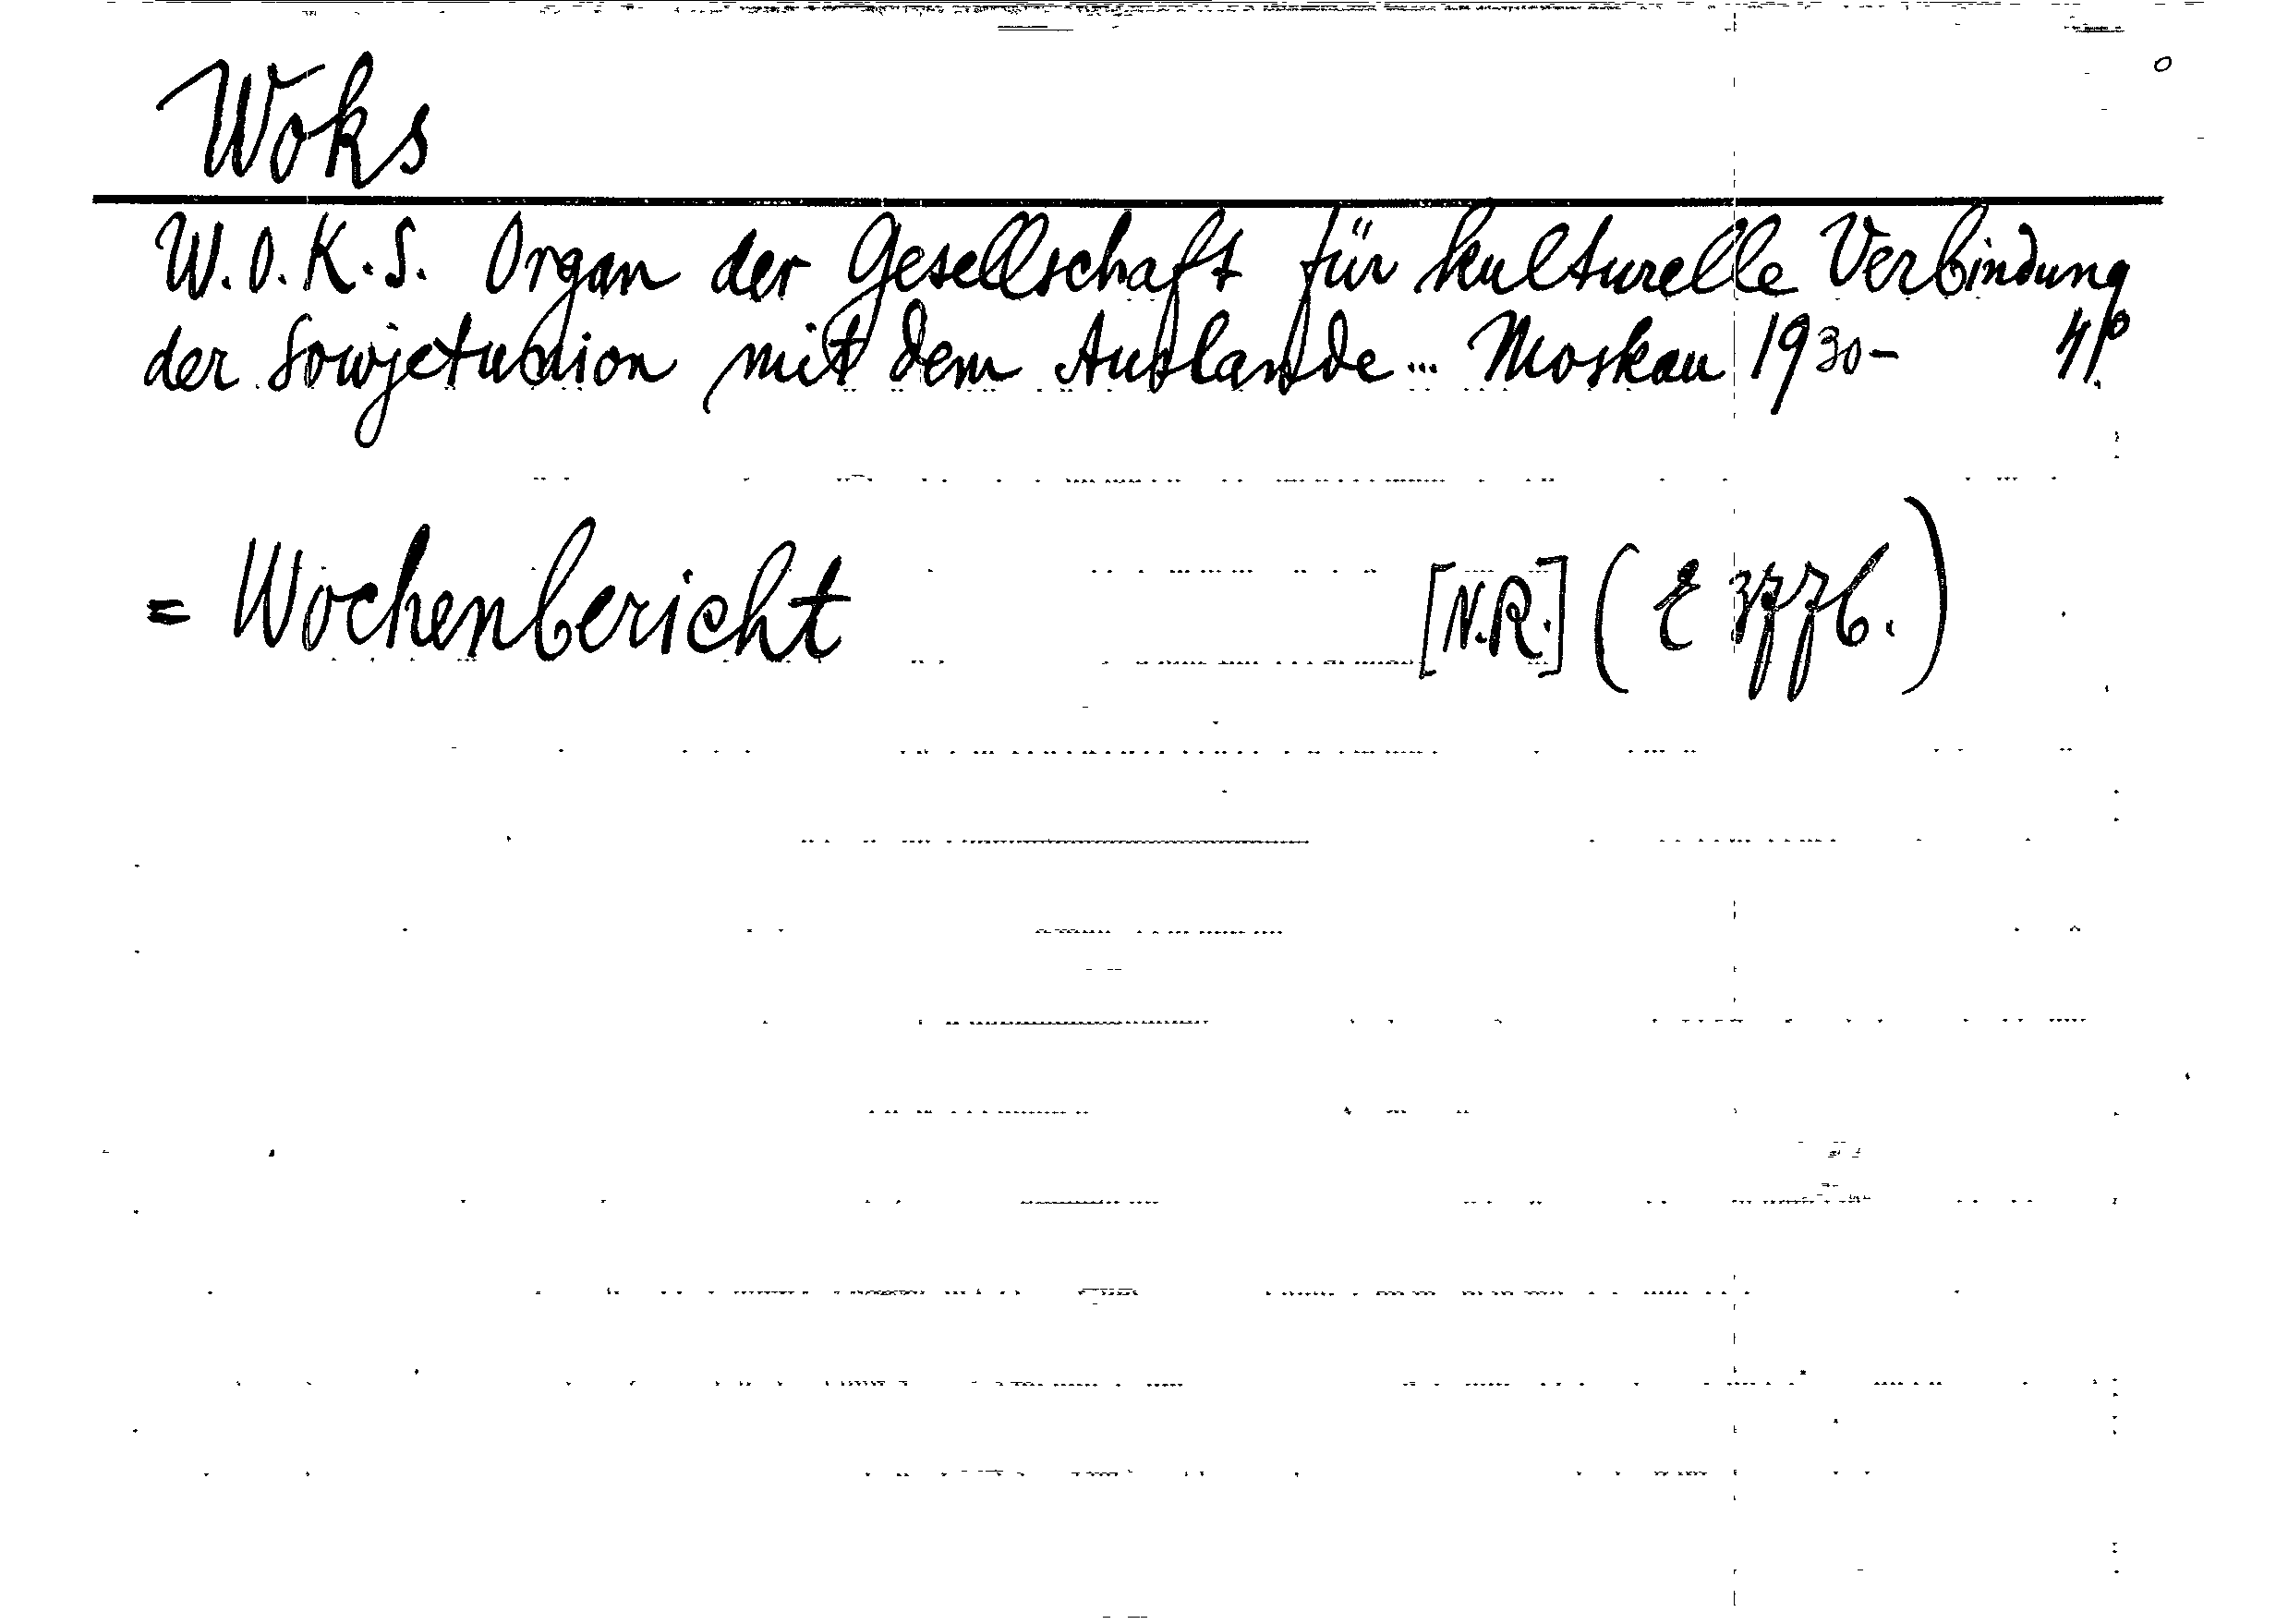 Woks
W.O.K.S. Organ der Gesellschaft für kulturelle Verbindung
der Sowjetunion mit dem Auslande... Moskau 1930- 4°.
= Wochenbericht [N.R.] (